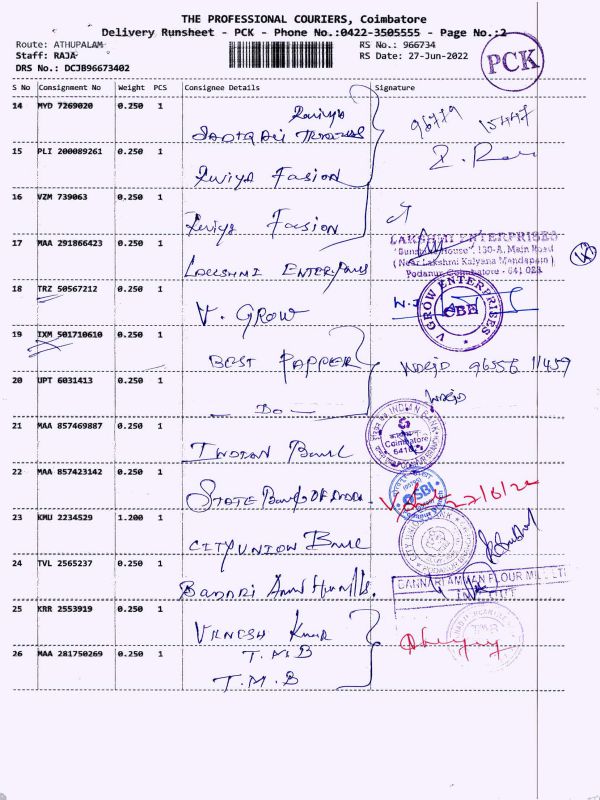 THE PROFESSIONAL COURIERS, Coimbatore
Delivery Runsheet - PCK - Phone No.:0422-3505555 - Page No.:2
Route: ATHUPALAM RS No.: 966734
Staff: RAJA RS Date: 27-Jun-2022
DRS No.: DCJB96673402
PCK
S No Consignment No Weight PCS Consignee Details Signature
14 MYD 7269020 0.250 1
15 PLI 200089261 0.250 1
Fasion
16 VZM 739063 0.250 1
Fasion
17 MAA 291866423 0.250 1
LAKSHMI ENTERPRISES
House", 130-A, Main Road
(Near Lakshmi Kalyana Mandapam)
Podanur, Coimbatore - 641 023.
18 TRZ 50567212 0.250 1
V. GROW
V GROW ENTERPRISES
CBE
19 IXM 501710610 0.250 1
BEST PAPPER
20 UPT 6031413 0.250 1
Do
21 MAA 857469887 0.250 1
INDIAN BANK
Coimbatore
INDIAN Bank
22 MAA 857423142 0.250 1
STATE Bank OF India
SBI
27/6/22
23 KMU 2234529 1.200 1
CITY UNION Bank
24 TVL 2565237 0.250 1
BANNARI AMMAN FLOUR MILL
25 KRR 2553919 0.250 1
Kumar
T.M.B
26 MAA 281750269 0.250 1
T.M.B